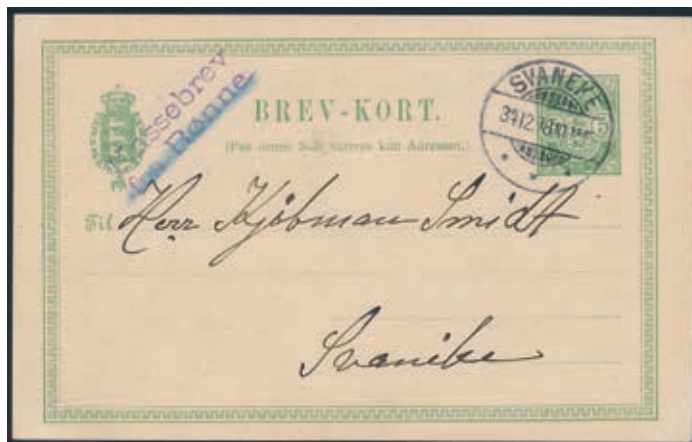 Kassebrev
fra Rønne
BREV-KORT.
(Paa denne Side skrives kun Adressen.)
SVANEKE
Til Herr Kjøbman Smidt
Svanike